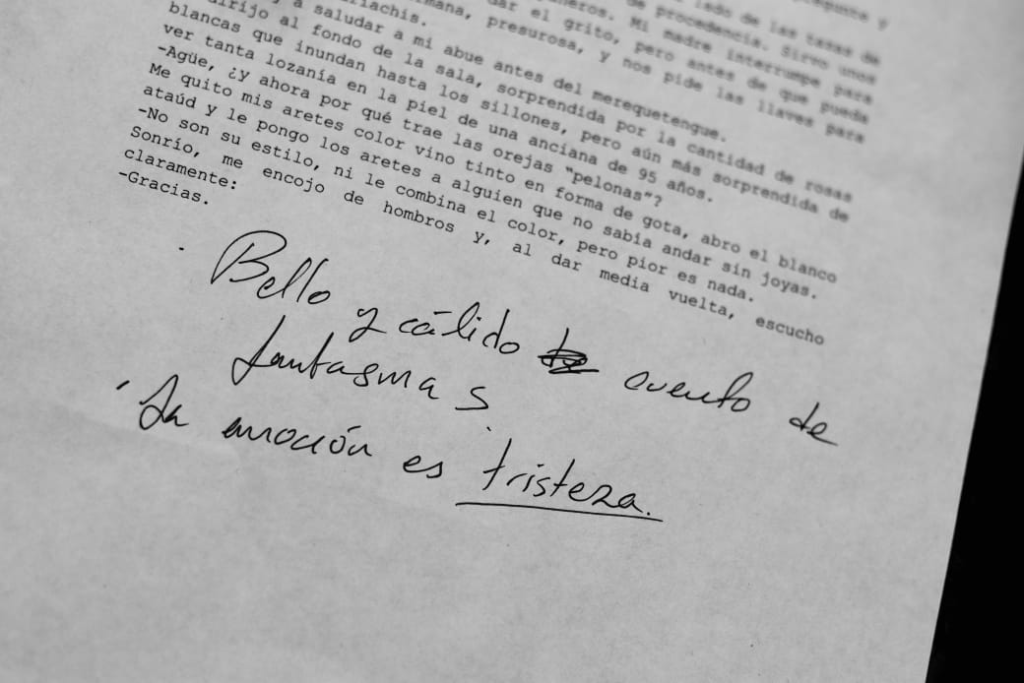 lado de las tazas de
de procedencia. Sirvo unos
Mi madre interrumpe para
dar el grito, pero antes de que pueda
presurosa, y nos pide las llaves para
a saludar a mi abue antes del merequetengue.
dirijo al fondo de la sala, sorprendida por la cantidad de rosas
blancas que inundan hasta los sillones, pero aún más sorprendida de
ver tanta lozanía en la piel de una anciana de 95 años.
-Agüe, ¿y ahora por qué trae las orejas "pelonas"?
Me quito mis aretes color vino tinto en forma de gota, abro el blanco
ataúd y le pongo los aretes a alguien que no sabía andar sin joyas.
-No son su estilo, ni le combina el color, pero pior es nada.
Sonrío, me encojo de hombros y, al dar media vuelta, escucho
claramente:
-Gracias.
· Bello y cálido cuento de
fantasmas
· La emoción es tristeza.